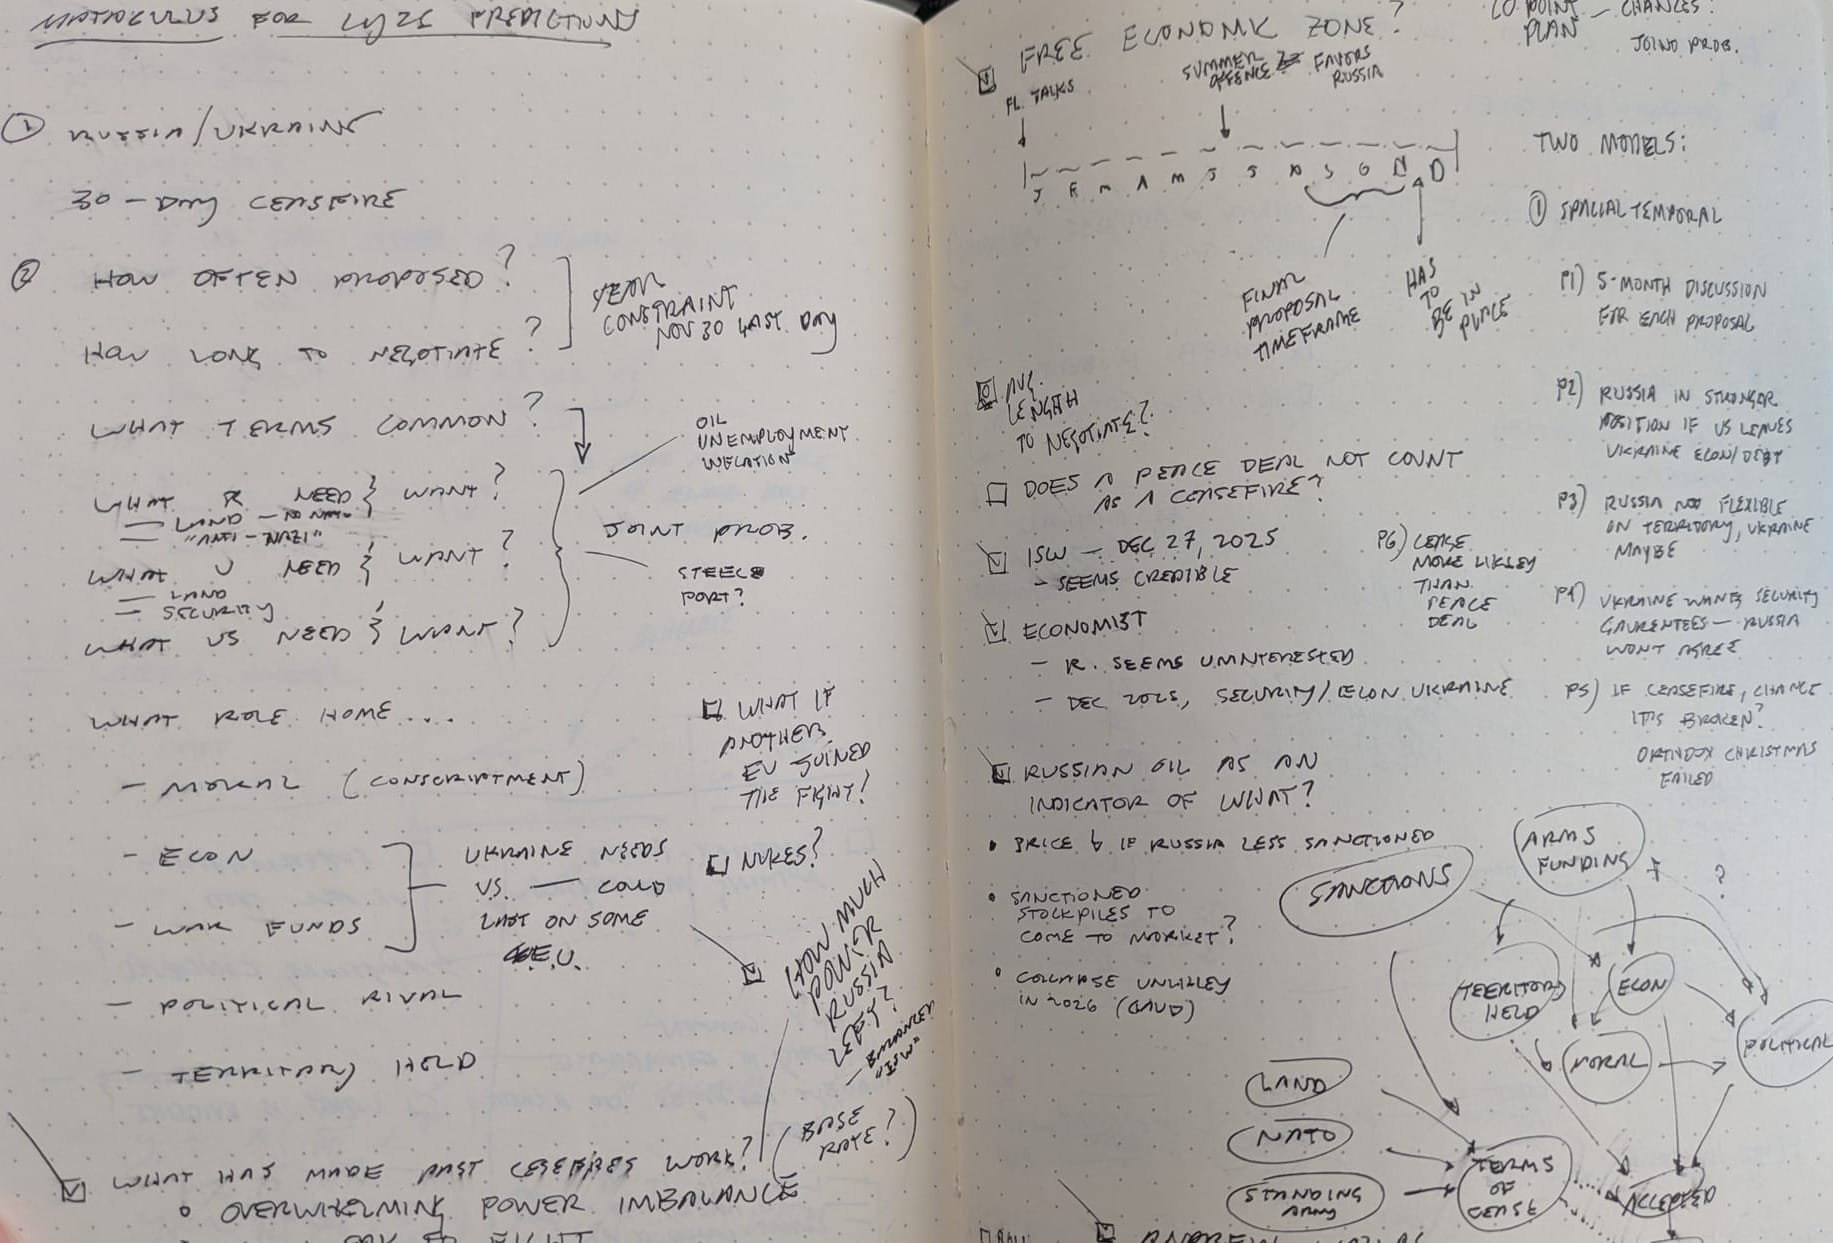 FOR PREDICTIONS
① RUSSIA/UKRAINE
30-DAY CEASEFIRE
② HOW OFTEN PROPOSED?
HOW LONG TO NEGOTIATE?
YEAR
CONSTRAINT
NOV 30 LAST DAY
WHAT TERMS COMMON?
WHAT R NEED } WANT?
= LAND
= "ANTI-NAZI"
WHAT U NEED } WANT?
= LAND
= SECURITY
WHAT US NEED } WANT?
OIL
UNEMPLOYMENT
INFLATION
JOINT PROB.
STEEL
PORT?
WHAT ROLE HOME....
- MORAL (CONSCRIPTMENT)
- ECON
- WAR FUNDS
UKRAINE NEEDS
US — COULD
LAST ON SOME
E.U.
- POLITICAL RIVAL
- TERRITORY HELD
WHAT IF
ANOTHER
EU JOINED
THE FIGHT!
NUKES?
HOW MUCH
POWER
RUSSIA
LEFT?
"ISW"
WHAT HAS MADE PAST CEASEFIRES WORK?
(BASE
RATE?)
• OVERWHELMING POWER IMBALANCE
FREE ECONOMIC ZONE?
PLAN - CHANCES:
JOINT PROB.
FL TALKS
SUMMER
OFFENCE
FAVORS
RUSSIA
J F M A M J J A S O N D
FINAL
PROPOSAL
TIMEFRAME
HAS
TO
BE IN
PLACE
AVG.
LENGTH
TO NEGOTIATE?
DOES A PEACE DEAL NOT COUNT
AS A CEASEFIRE?
ISW - DEC 27, 2025
- SEEMS CREDIBLE
ECONOMIST
- R. SEEMS UNINTERESTED
- DEC 2025, SECURITY/ECON UKRAINE
RUSSIAN OIL AS AN
INDICATOR OF WHAT?
• PRICE ↓ IF RUSSIA LESS SANCTIONED
• SANCTIONED
STOCKPILES TO
COME TO MARKET?
• COLLAPSE UNLIKLEY
IN 2026
TWO MODELS:
① SPACIAL TEMPORAL
P1) 5-MONTH DISCUSSION
FOR EACH PROPOSAL
P2) RUSSIA IN STRONGER
POSITION IF US LEAVES
UKRAINE ECON/DEBT
P3) RUSSIA NOT FLEXIBLE
ON TERRITORY, UKRAINE
MAYBE
P4) UKRAINE WANTS SECURITY
GAURENTEES - RUSSIA
WONT AGREE
P5) IF CEASEFIRE, CHANCE
ITS BROKEN?
ORTHODOX CHRISTMAS
FAILED
P6) CEASE
MORE LIKLEY
THAN
PEACE
DEAL
ARMS
FUNDING
?
SANCTIONS
TERRITORY
HELD
ECON
MORAL
POLITICAL
LAND
NATO
STANDING
ARMY
TERMS
OF
CEASE
ACCEPTED